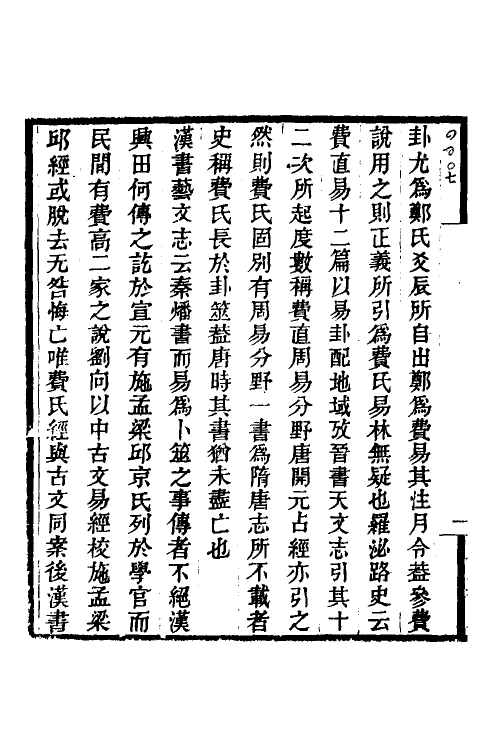 卦尤爲鄭氏爻辰所自出鄭爲費易其注月令葢參費
說用之則正義所引爲費氏易林無疑也羅泌路史云
費直易十二篇以易卦配地域攷晉書天文志引其十
二次所起度數稱費直周易分野唐開元占經亦引之
然則費氏固別有周易分野一書爲隋唐志所不載者
史稱費氏長於卦筮葢唐時其書猶未盡亡也
漢書藝文志云秦燔書而易爲卜筮之事傳者不絕漢
興田何傳之訖於宣元有施孟梁邱京氏列於學官而
民間有費高二家之說劉向以中古文易經校施孟梁
邱經或脫去无咎悔亡唯費氏經與古文同案後漢書
一